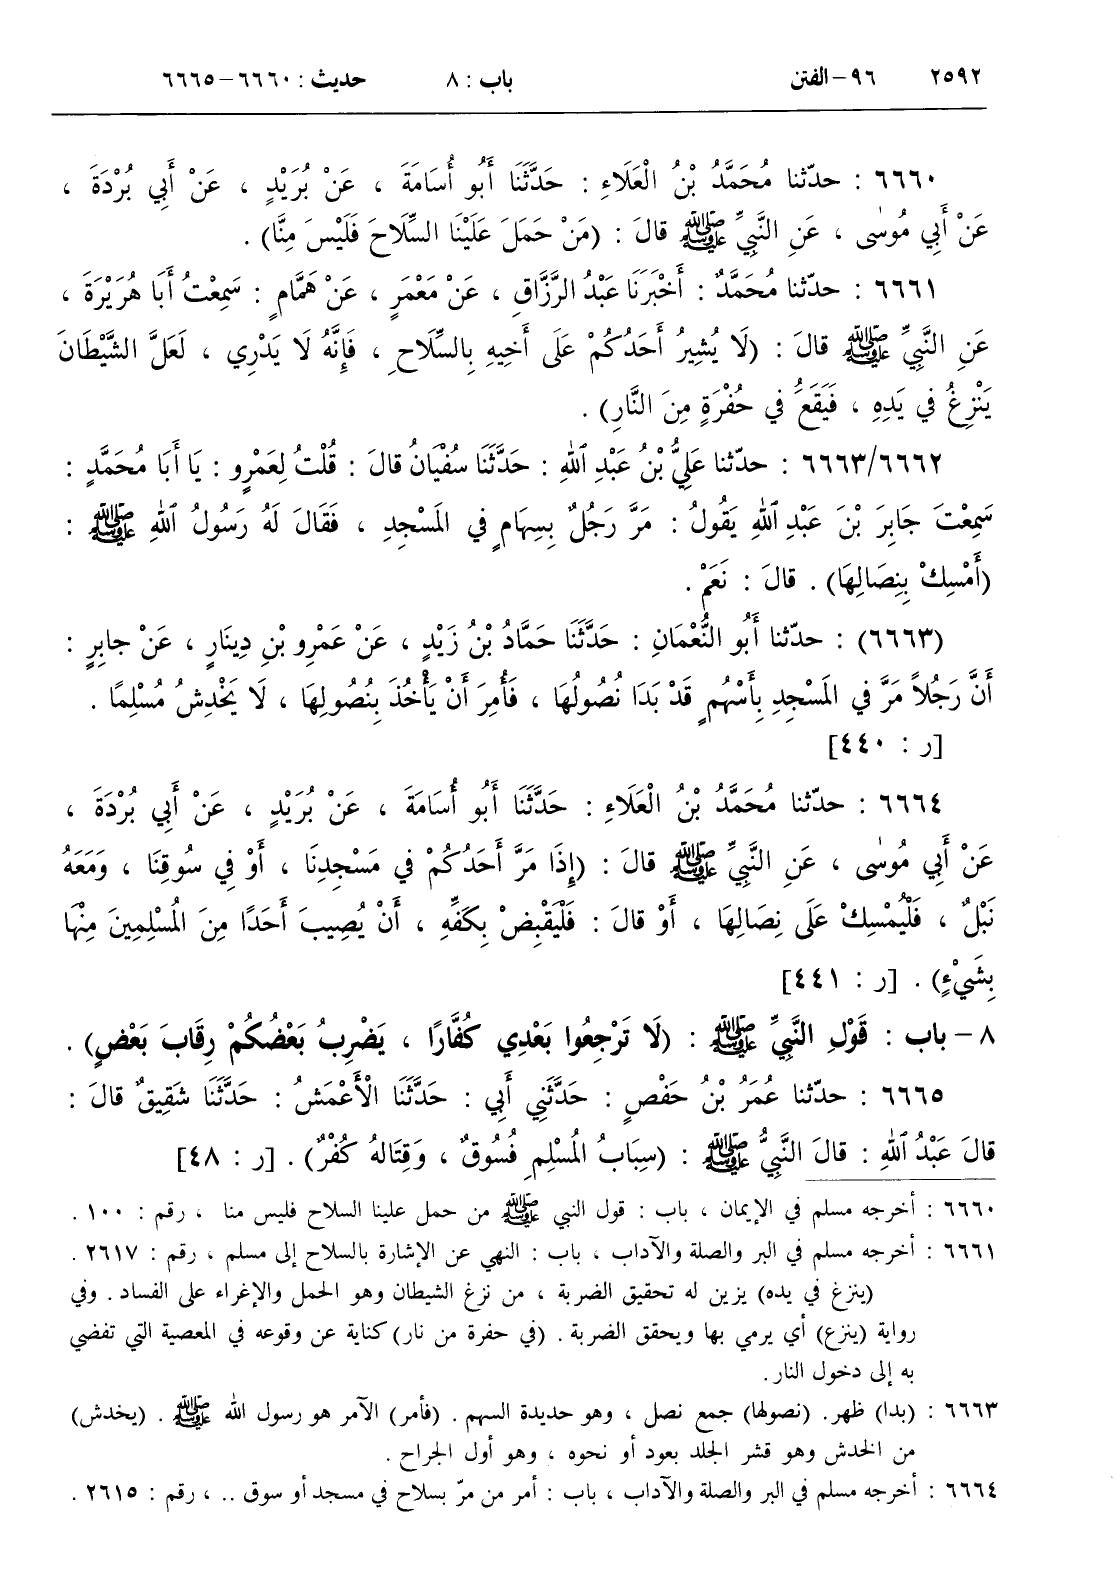 ٢٥٩٢ ٩٦- الفتن باب : ٨ حديث : ٦٦٦٠-٦٦٦٥
٦٦٦٠ : حدّثنا مُحَمَّدُ بْنُ الْعَلَاءِ : حَدَّثَنَا أَبُو أُسَامَةَ ، عَنْ بُرَيْدٍ ، عَنْ أَبِي بُرْدَةَ ،
عَنْ أَبِي مُوسٰى ، عَنِ النَّبِيِّ ﷺ قالَ : (مَنْ حَمَلَ عَلَيْنَا السِّلَاحَ فَلَيْسَ مِنَّا) .
٦٦٦١ : حدّثنا مُحَمَّدٌ : أَخْبَرَنَا عَبْدُ الرَّزَّاقِ ، عَنْ مَعْمَرٍ ، عَنْ هَمَّامٍ : سَمِعْتُ أَبَا هُرَيْرَةَ ،
عَنِ النَّبِيِّ ﷺ قالَ : (لَا يُشِيرُ أَحَدُكُمْ عَلَى أَخِيهِ بِالسِّلَاحِ ، فَإِنَّهُ لَا يَدْرِي ، لَعَلَّ الشَّيْطَانَ
يَنْزِغُ في يَدِهِ ، فَيَقَعُ في حُفْرَةٍ مِنَ النَّارِ) .
٦٦٦٣/٦٦٦٢ : حدّثنا عَلِيُّ بْنُ عَبْدِ ٱللهِ : حَدَّثَنَا سُفْيَانُ قالَ : قُلْتُ لِعَمْرٍو : يَا أَبَا مُحَمَّدٍ :
سَمِعْتَ جَابِرَ بْنَ عَبْدِ ٱللهِ يَقُولُ : مَرَّ رَجُلٌ بِسِهَامٍ في المَسْجِدِ ، فَقَالَ لَهُ رَسُولُ ٱللهِ ﷺ :
(أَمْسِكْ بِنِصَالِهَا) . قالَ : نَعَمْ .
(٦٦٦٣) : حدّثنا أَبُو النُّعْمَانِ : حَدَّثَنَا حَمَّادُ بْنُ زَيْدٍ ، عَنْ عَمْرِو بْنِ دِينَارٍ ، عَنْ جابِرٍ :
أَنَّ رَجُلاً مَرَّ في المَسْجِدِ بِأَسْهُمٍ قَدْ بَدَا نُصُولُهَا ، فَأُمِرَ أَنْ يَأْخُذَ بِنُصُولِهَا ، لَا يَخْدِشُ مُسْلِمًا .
[ر : ٤٤٠]
٦٦٦٤ : حدّثنا مُحَمَّدُ بْنُ الْعَلَاءِ : حَدَّثَنَا أَبُو أُسَامَةَ ، عَنْ بُرَيْدٍ ، عَنْ أَبِي بُرْدَةَ ،
عَنْ أَبِي مُوسٰى ، عَنِ النَّبِيِّ ﷺ قالَ : (إِذَا مَرَّ أَحَدُكُمْ في مَسْجِدِنَا ، أَوْ في سُوقِنَا ، وَمَعَهُ
نَبْلٌ ، فَلْيُمْسِكْ عَلَى نِصَالِهَا ، أَوْ قالَ : فَلْيَقْبِضْ بِكَفِّهِ ، أَنْ يُصِيبَ أَحَدًا مِنَ الْمُسْلِمِينَ مِنْهَا
بِشَيْءٍ) . [ر : ٤٤١]
٨ - باب : قَوْلِ النَّبِيِّ ﷺ : (لَا تَرْجِعُوا بَعْدِي كُفَّارًا ، يَضْرِبُ بَعْضُكُمْ رِقَابَ بَعْضٍ) .
٦٦٦٥ : حدّثنا عُمَرُ بْنُ حَفْصٍ : حَدَّثَنِي أَبِي : حَدَّثَنَا الْأَعْمَشُ : حَدَّثَنَا شَقِيقٌ قالَ :
قالَ عَبْدُ ٱللهِ : قالَ النَّبِيُّ ﷺ : (سِبَابُ الْمُسْلِمِ فُسُوقٌ ، وَقِتَالُهُ كُفْرٌ) . [ر : ٤٨]
٦٦٦٠ : أخرجه مسلم في الإيمان ، باب : قول النبي ﷺ من حمل علينا السلاح فليس منا ، رقم : ١٠٠ .
٦٦٦١ : أخرجه مسلم في البر والصلة والآداب ، باب : النهي عن الإشارة بالسلاح إلى مسلم ، رقم : ٢٦١٧ .
(ينزغ في يده) يزين له تحقيق الضربة ، من نزغ الشيطان وهو الحمل والإغراء على الفساد . وفي
رواية (ينزع) أي يرمي بها ويحقق الضربة . (في حفرة من نار) كناية عن وقوعه في المعصية التي تفضي
به إلى دخول النار .
٦٦٦٣ : (بدا) ظهر . (نصولها) جمع نصل ، وهو حديدة السهم . (فأمر) الآمر هو رسول الله ﷺ . (يخدش)
من الخدش وهو قشر الجلد بعود أو نحوه ، وهو أول الجراح .
٦٦٦٤ : أخرجه مسلم في البر والصلة والآداب ، باب : أمر من مرّ بسلاح في مسجد أو سوق .. ، رقم : ٢٦١٥ .